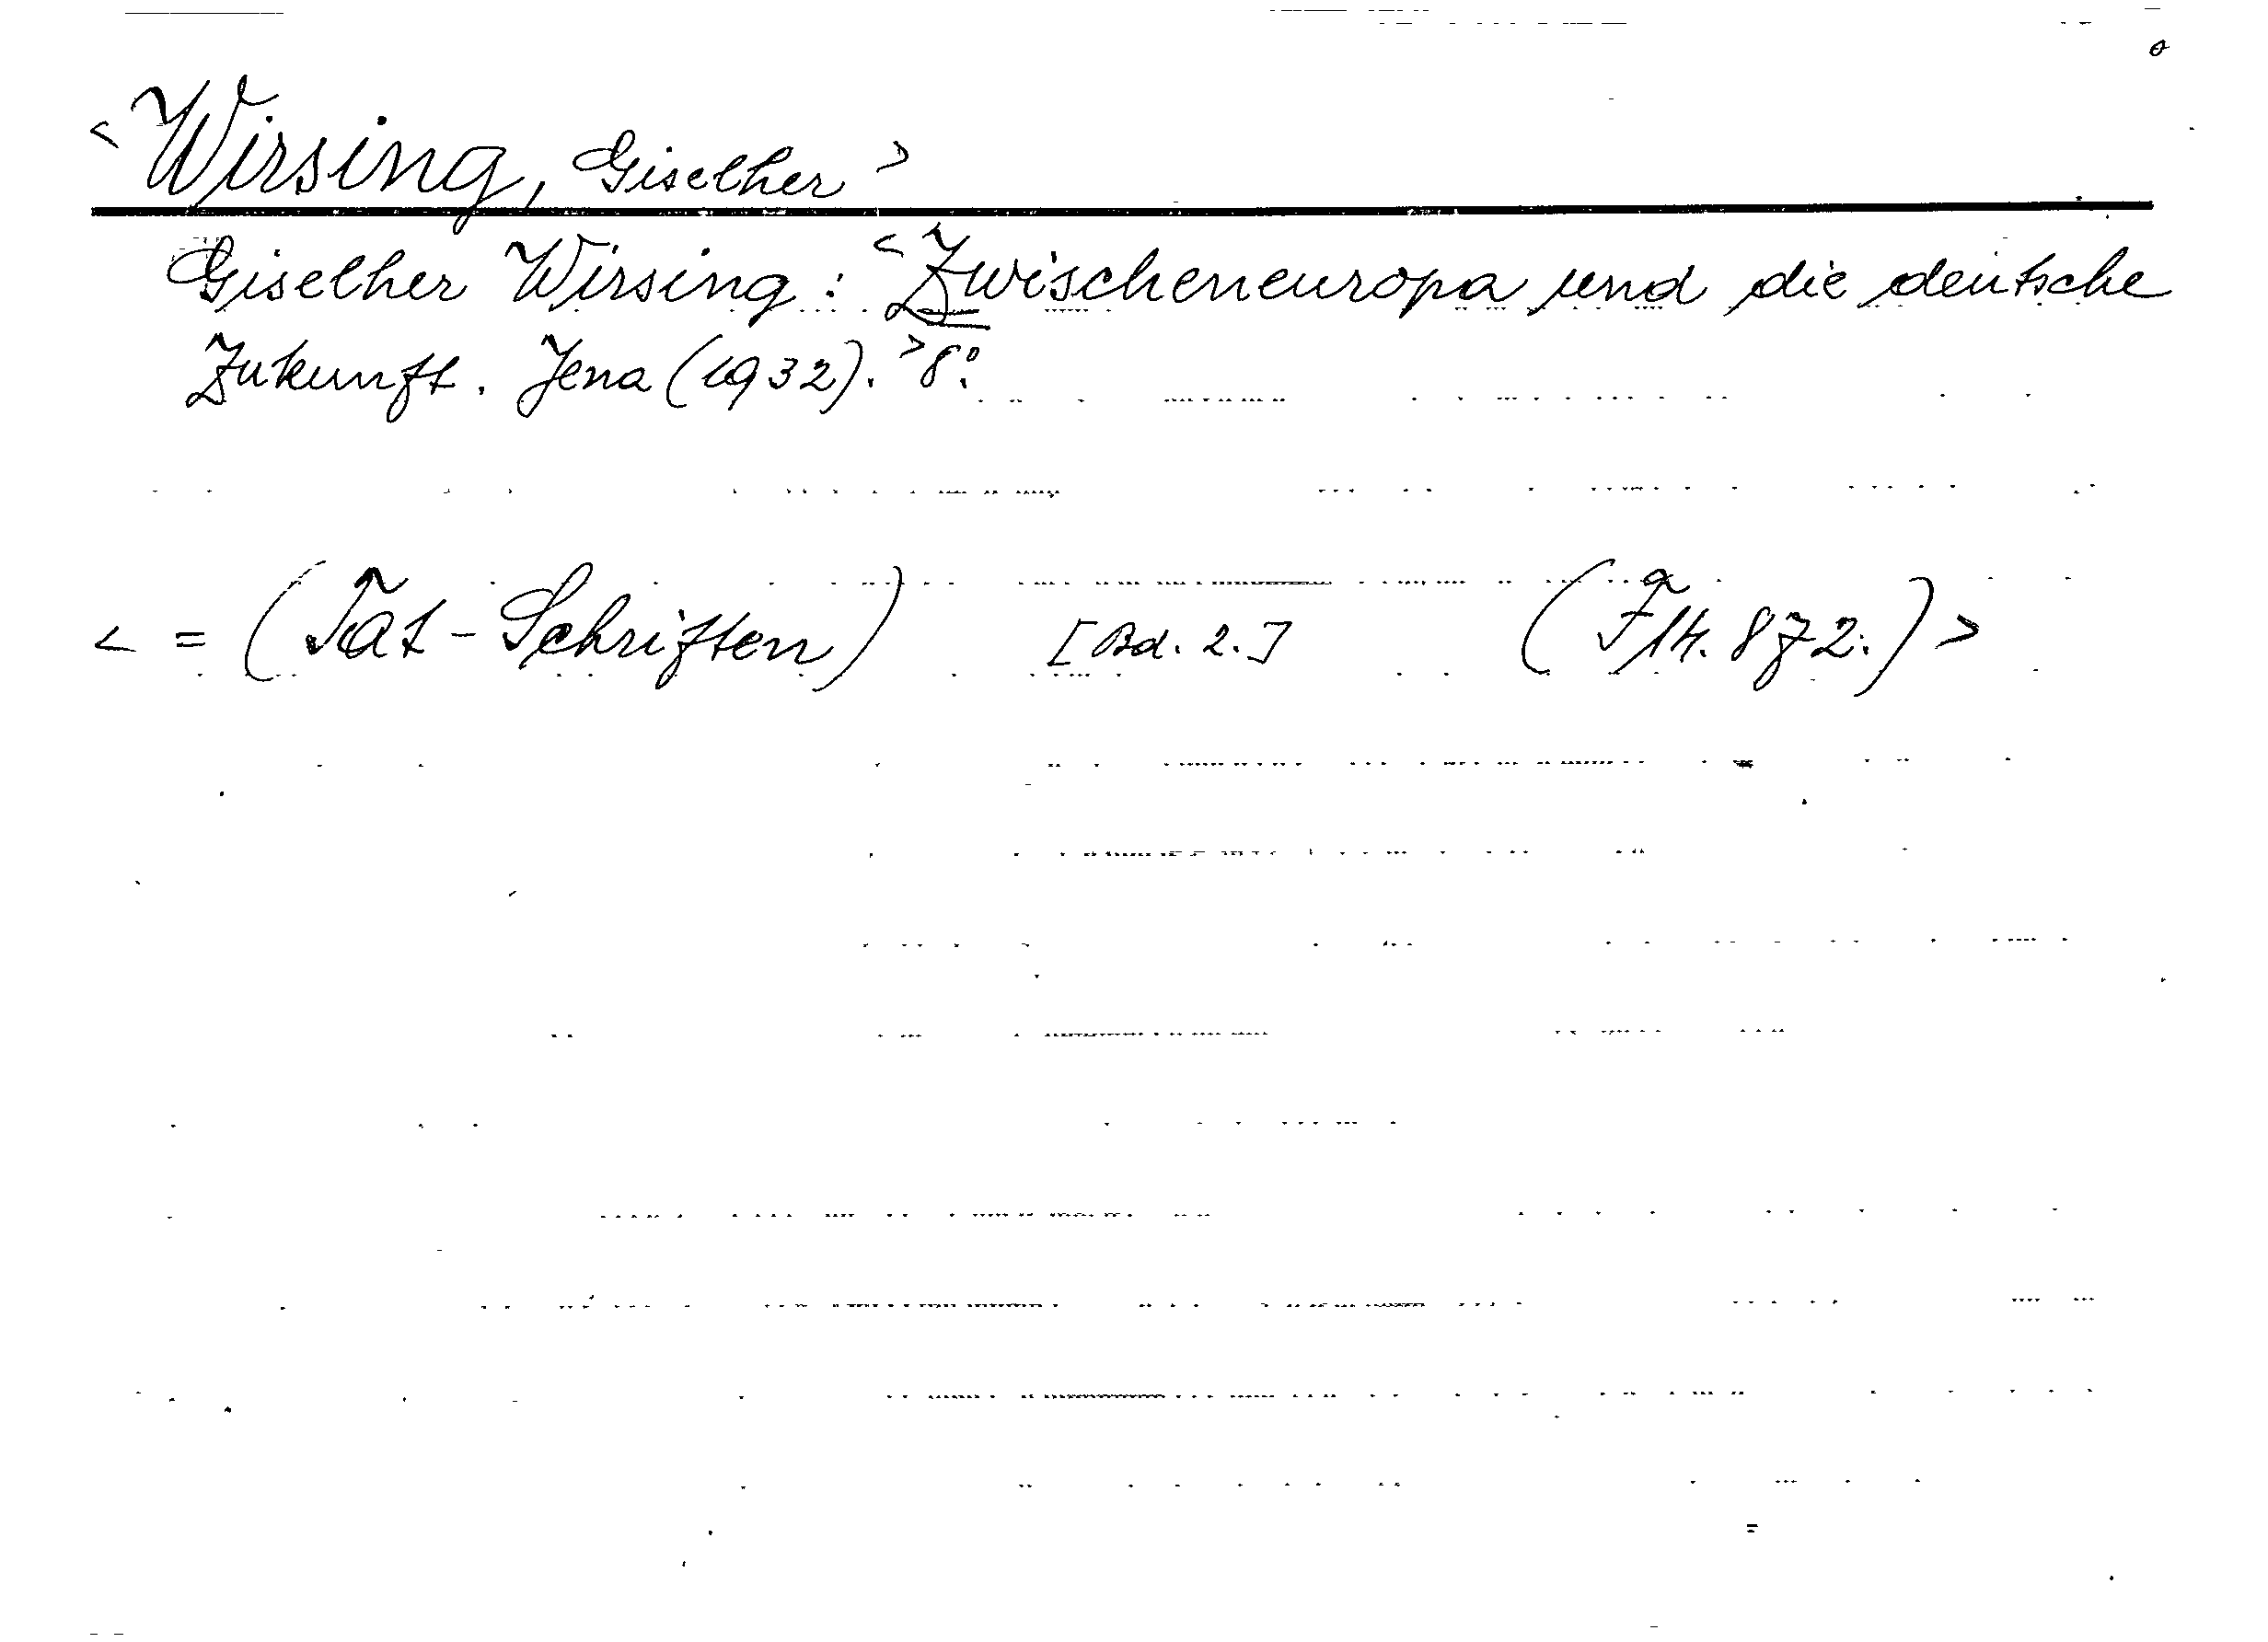 < Wirsing, Giselher >
Giselher Wirsing: < Zwischeneuropa und die deutsche
Zukunft. Jena (1932). > 8°.
< = (Tat-Schriften) [Bd. 2.] (F 14. 872.) >